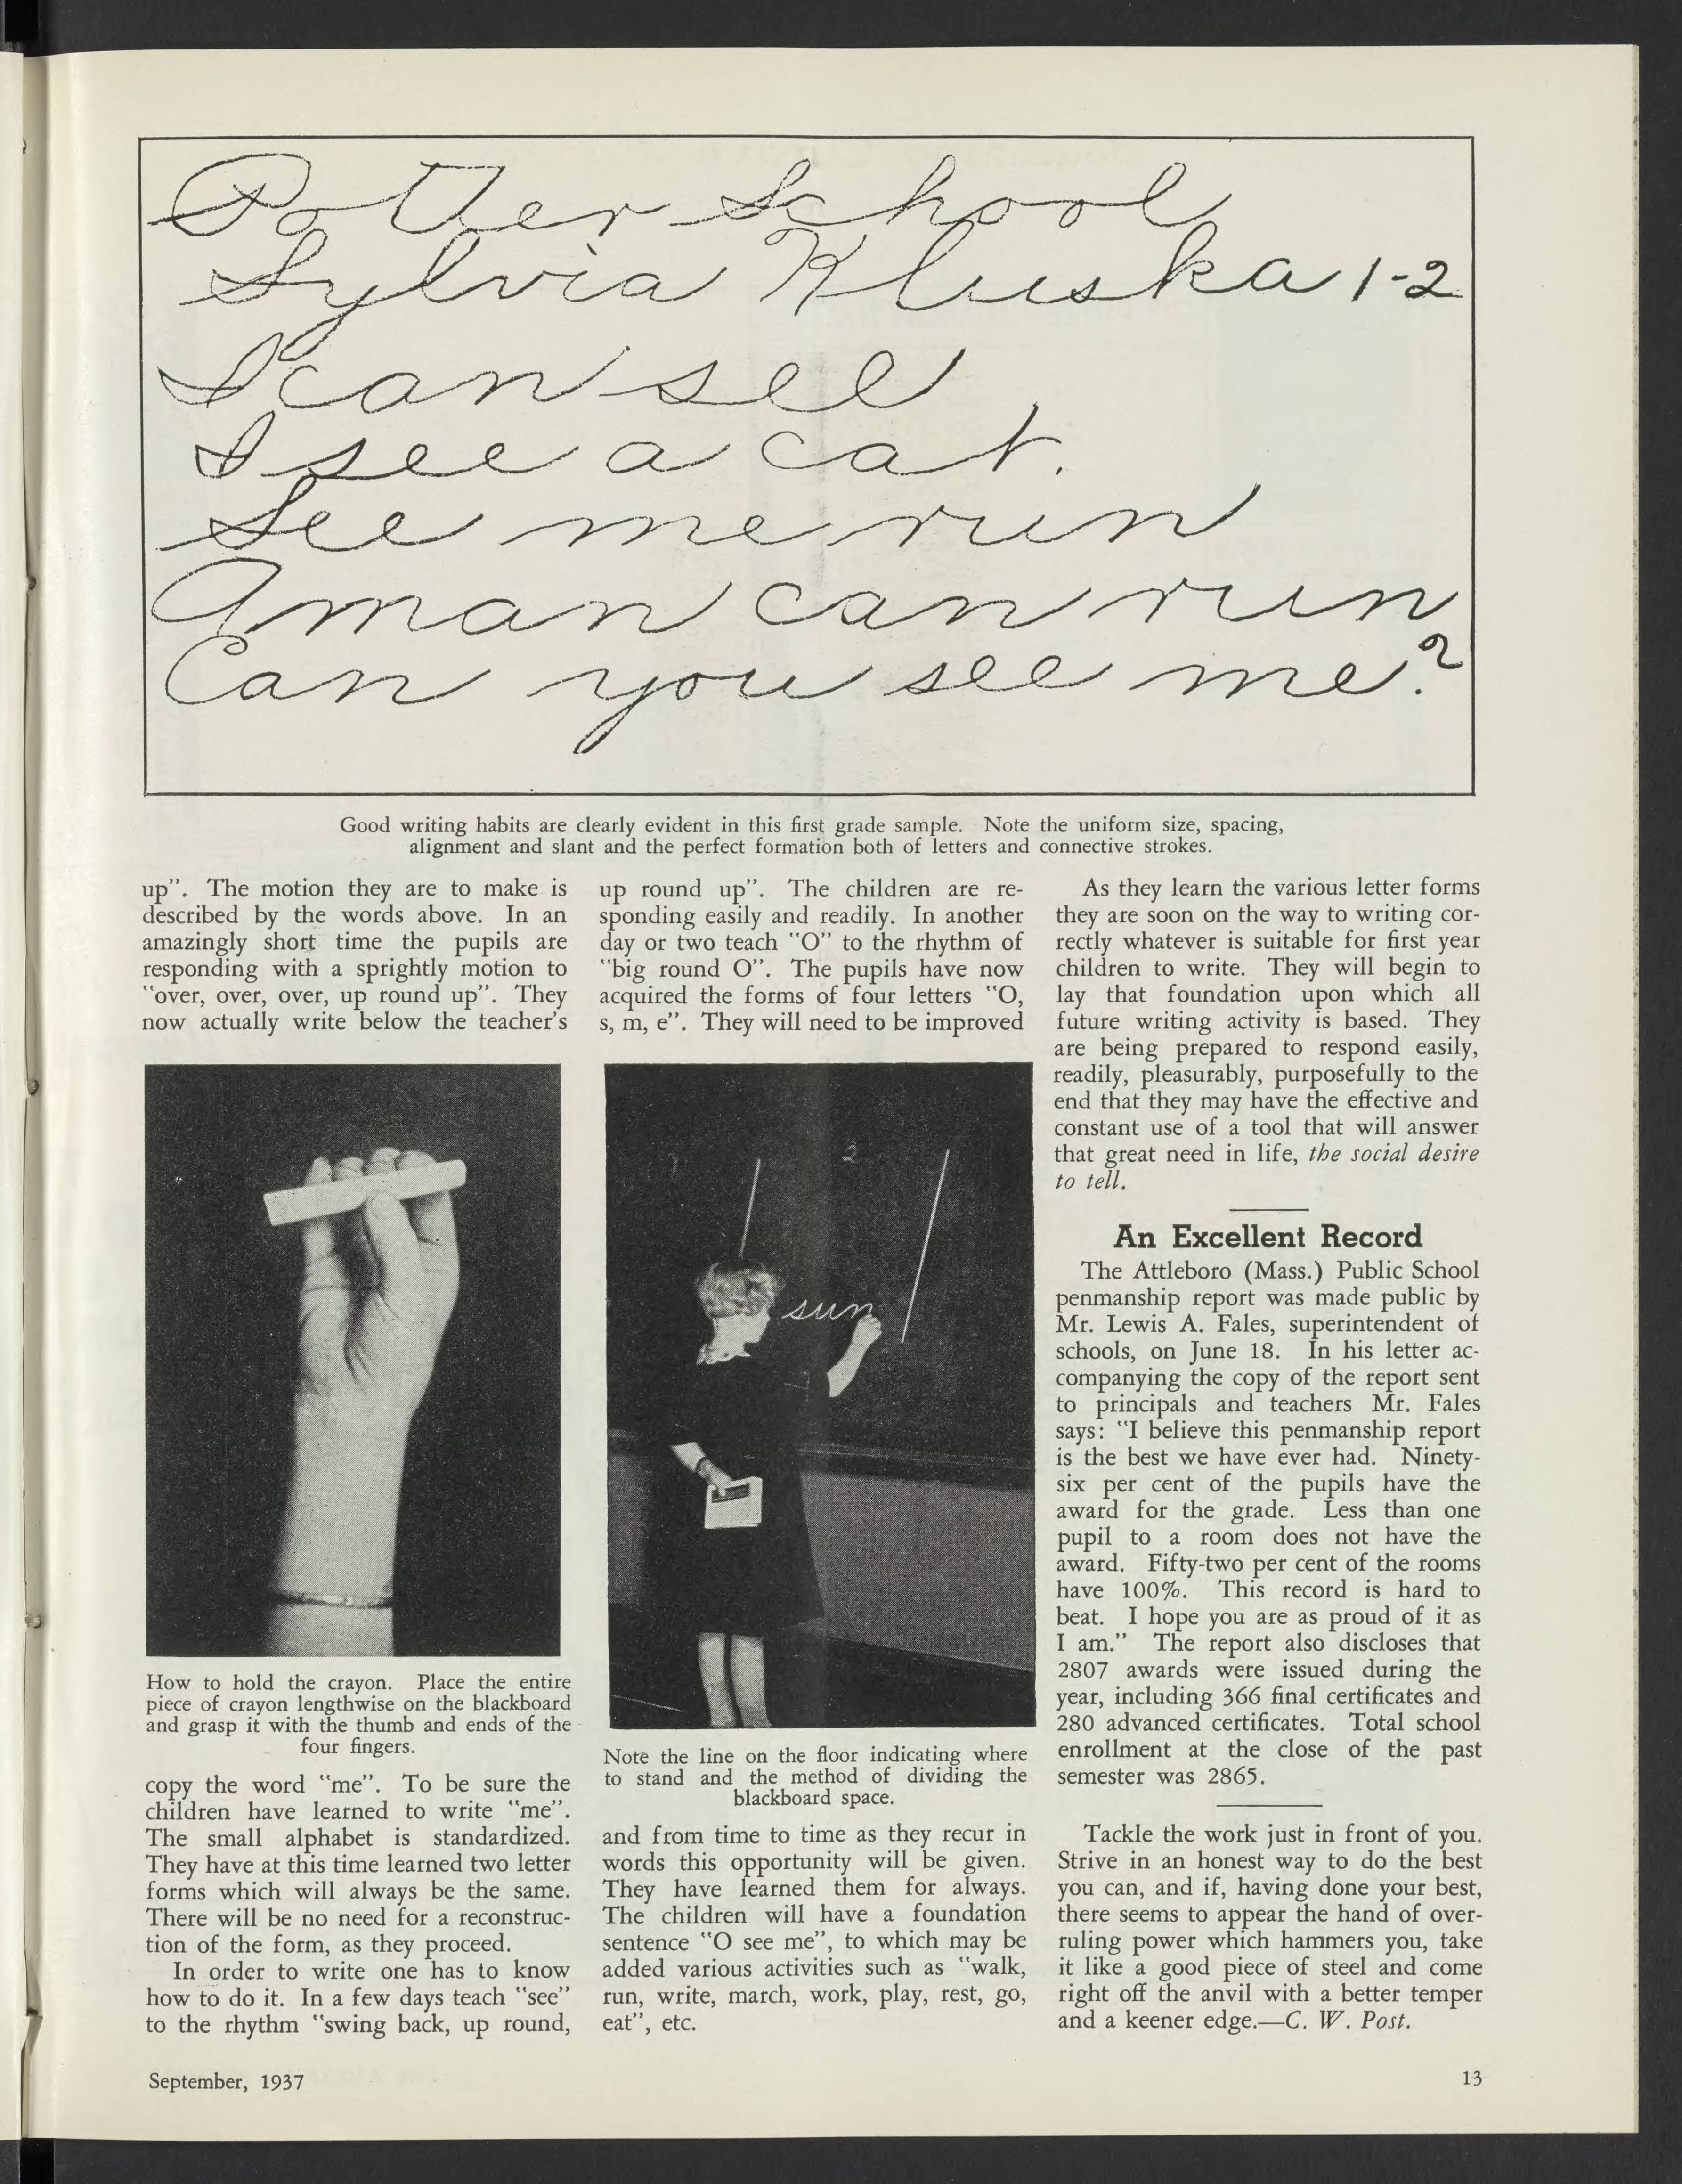 Potter School
Sylvia Kluska 1-2
I can see
I see a cat.
See me run
A man can run
Can you see me?
Good writing habits are clearly evident in this first grade sample. Note the uniform size, spacing,
alignment and slant and the perfect formation both of letters and connective strokes.
up". The motion they are to make is
described by the words above. In an
amazingly short time the pupils are
responding with a sprightly motion to
"over, over, over, up round up". They
now actually write below the teacher's
2
sun
How to hold the crayon. Place the entire
piece of crayon lengthwise on the blackboard
and grasp it with the thumb and ends of the
four fingers.
copy the word "me". To be sure the
children have learned to write "me".
The small alphabet is standardized.
They have at this time learned two letter
forms which will always be the same.
There will be no need for a reconstruc-
tion of the form, as they proceed.
In order to write one has to know
how to do it. In a few days teach "see"
to the rhythm "swing back, up round,
up round up". The children are re-
sponding easily and readily. In another
day or two teach "O" to the rhythm of
"big round O". The pupils have now
acquired the forms of four letters "O,
s, m, e". They will need to be improved
Note the line on the floor indicating where
to stand and the method of dividing the
blackboard space.
and from time to time as they recur in
words this opportunity will be given.
They have learned them for always.
The children will have a foundation
sentence "O see me", to which may be
added various activities such as "walk,
run, write, march, work, play, rest, go,
eat", etc.
As they learn the various letter forms
they are soon on the way to writing cor-
rectly whatever is suitable for first year
children to write. They will begin to
lay that foundation upon which all
future writing activity is based. They
are being prepared to respond easily,
readily, pleasurably, purposefully to the
end that they may have the effective and
constant use of a tool that will answer
that great need in life, the social desire
to tell.
An Excellent Record
The Attleboro (Mass.) Public School
penmanship report was made public by
Mr. Lewis A. Fales, superintendent of
schools, on June 18. In his letter ac-
companying the copy of the report sent
to principals and teachers Mr. Fales
says: "I believe this penmanship report
is the best we have ever had. Ninety-
six per cent of the pupils have the
award for the grade. Less than one
pupil to a room does not have the
award. Fifty-two per cent of the rooms
have 100%. This record is hard to
beat. I hope you are as proud of it as
I am." The report also discloses that
2807 awards were issued during the
year, including 366 final certificates and
280 advanced certificates. Total school
enrollment at the close of the past
semester was 2865.
Tackle the work just in front of you.
Strive in an honest way to do the best
you can, and if, having done your best,
there seems to appear the hand of over-
ruling power which hammers you, take
it like a good piece of steel and come
right off the anvil with a better temper
and a keener edge.—C. W. Post.
September, 1937
13